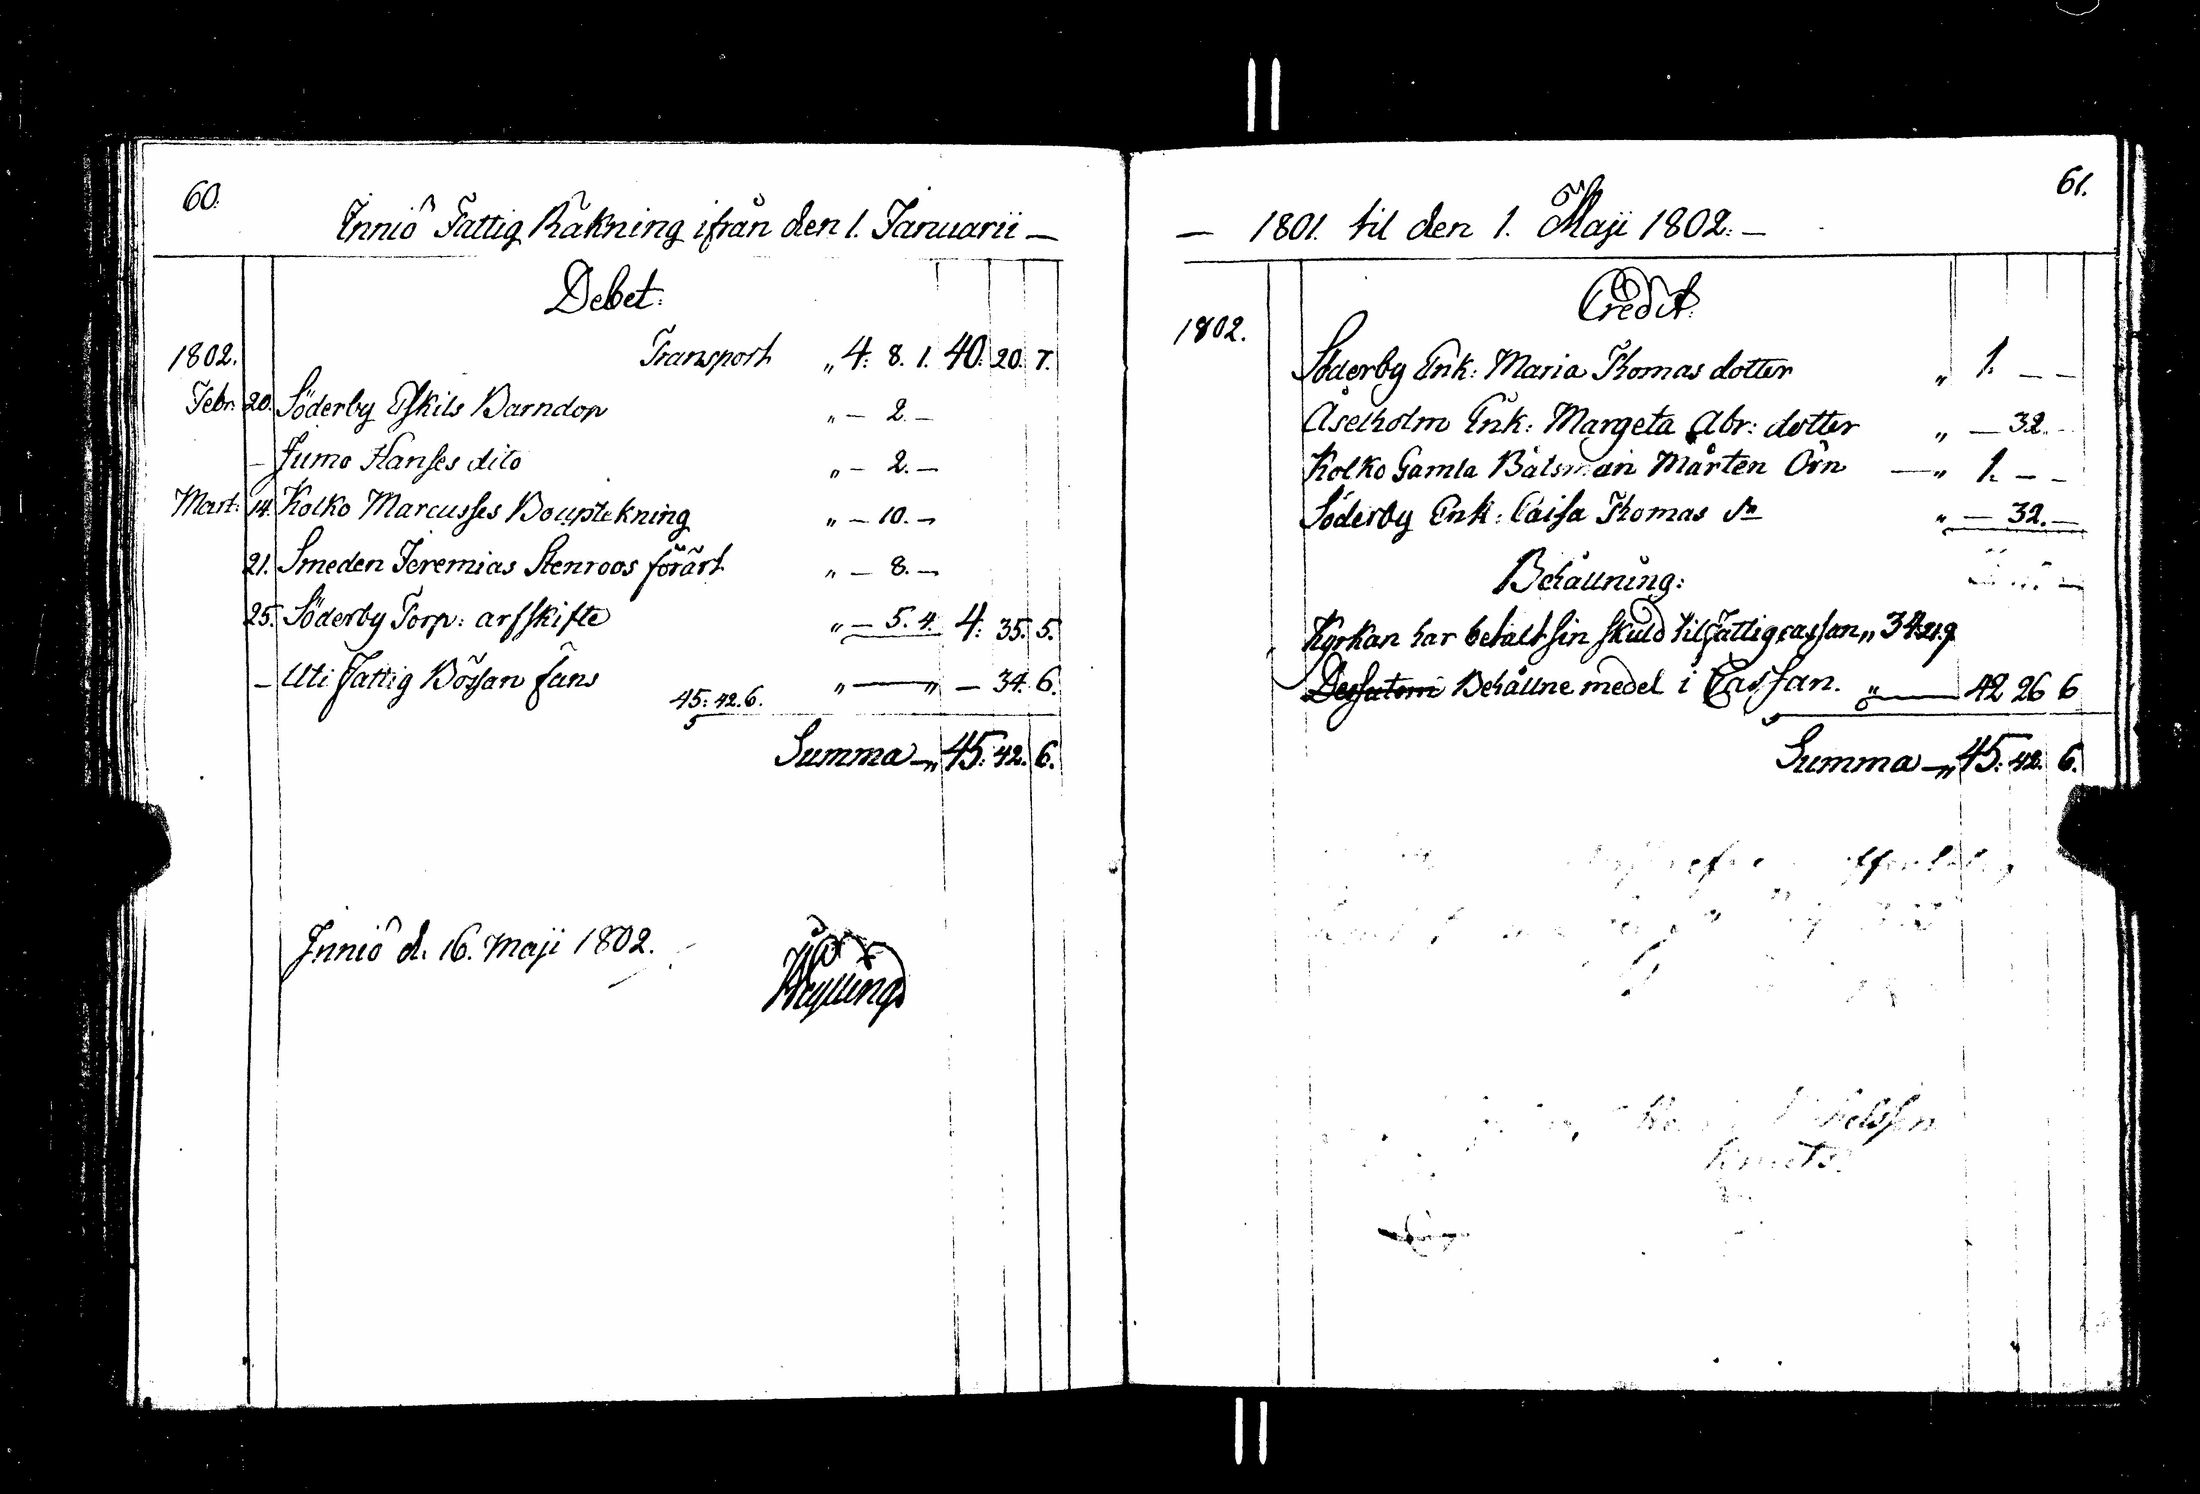 60.
Iniö Fattig Räkning ifrån den 1. Januarii —
Debet:
1802. Transport „ 4: 8. 1. 40: 20. 7.
Febr: 20. Söderby Eskils Barndop „ — 2. —
— Jumo Hanses dito „ — 2. —
Mart: 14. Kolko Marcusses Bouptekning „ — 10. —
21. Smeden Jeremias Stenroos förärt „ — 8. —
25. Söderby Torp: arfskifte „ — 5. 4. 4: 35. 5.
— Uti Fattig Bössan fans „ — „ — 34. 6.
45: 42. 6.
Summa — „ 45: 42. 6.
Iniö d. 16. Maji 1802.
61.
— 1801. til den 1. Maji 1802. —
Credit:
1802.
Söderby Enk: Maria Thomas dotter „ 1. — —
Åselholm Enk: Margeta Abr: dotter „ — 32. —
Kolko Gamla Båtsman Mårten Örn — „ 1. — —
Söderby Enk: Caisa Thomas dr „ — 32. —
Behållning:
Kyrkan har betalt sin skuld til Fattigcassan „ 34: 21. 9
Dessutom Behållne medel i Cassan. „ — 42 26 6
Summa — „ 45: 42. 6.